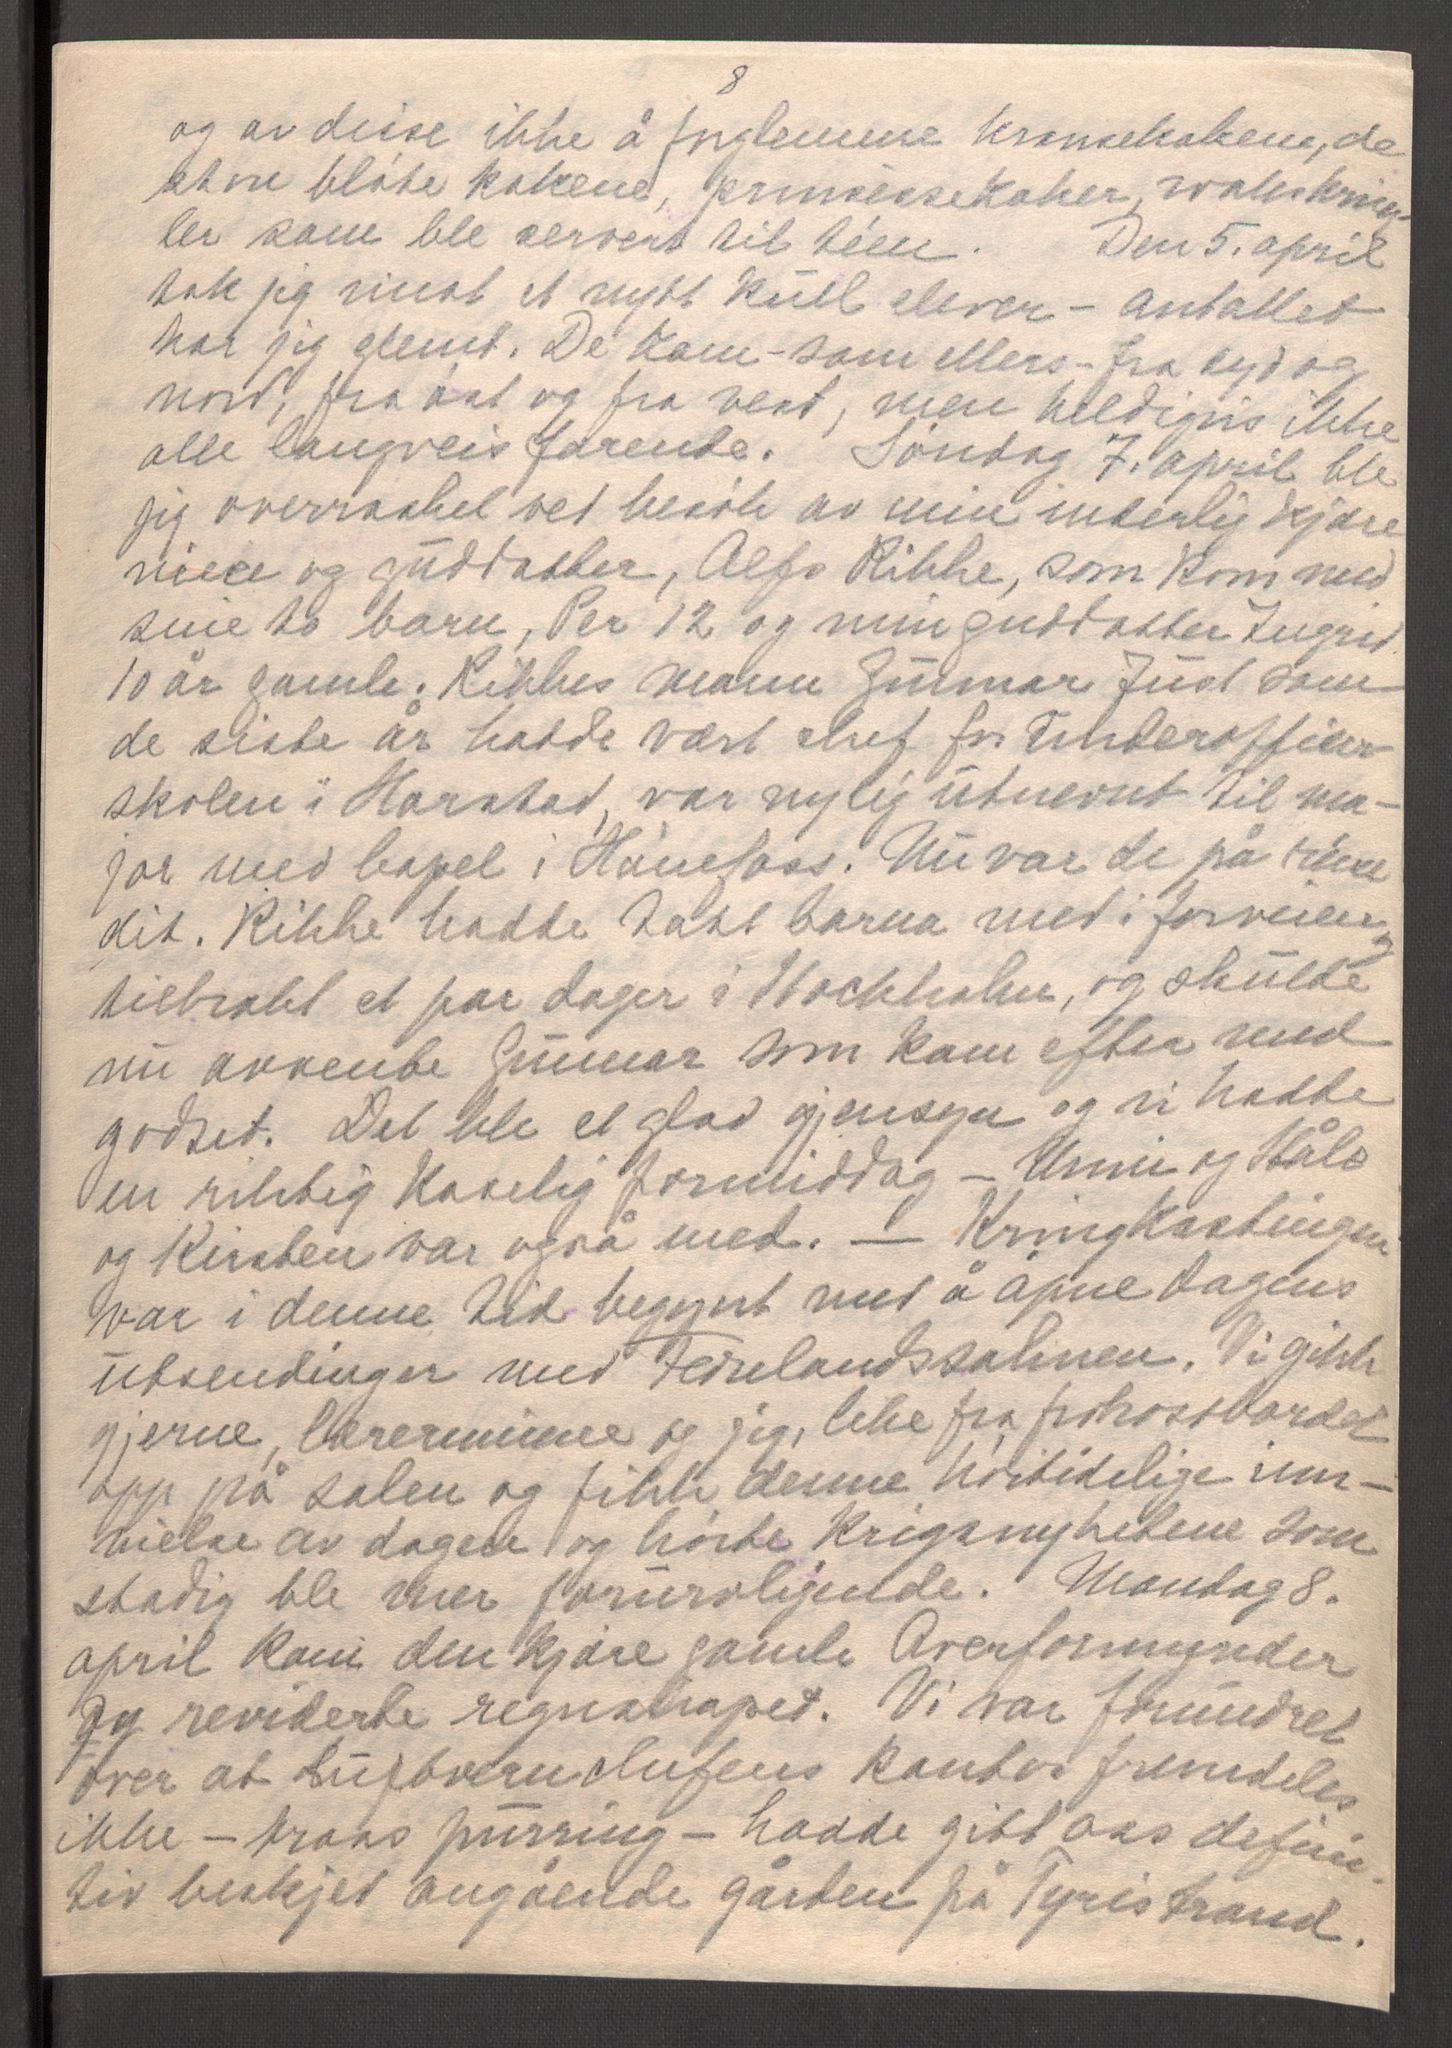 8
og av disse ikke å forglemme kransekakene, de
store bløte kakene, prinsessekaker, waleskring-
ler som ble servert til téen. Den 5. april
tok jeg imot et nytt kull elever - antallet
har jeg glemt. De kom - som ellers - fra syd og
nord, fra øst og fra vest, men heldigvis ikke
alle langveis farende. Søndag 7. april ble
jeg overrasket ved besøk av min inderlig kjære
niece og guddatter, Alfa Rikke, som kom med
sine to barn, Per 12 og min guddatter Ingrid
10 år gamle. Rikkes mann Gunnar Juul som
de siste år hadde vært chef for Underofficer
skolen i Harstad, var nylig utnevnt til ma-
jor med bopel i Hønefoss. Nu var de på reise
dit. Rikke hadde tatt barna med i forveien,
tilbrakt et par dager i Stockholm, og skulde
nu avvente Gunnar som kom efter med
godset. Det ble et glad gjensyn og vi hadde
en riktig koselig formiddag - Unni og Ståle
og Kirsten var også med. — Kringkastingen
var i denne tid begynt med å åpne dagens
utsendinger med Fedrelandssalmen. Vi gikk
gjerne, lærerinnene og jeg, like fra frokostbordet
opp på salen og fikk denne høitidelige inn-
vielse av dagen og hørte krigsnyhetene som
stadig ble mer foruroligende. Mandag 8.
april kom den kjære gamle Overformynder
og reviderte regnskapet. Vi var forundret
over at Luftvernchefens kontor fremdeles
ikke - tross purring - hadde gitt oss defini-
tiv beskjed angående gården på Tyristrand.